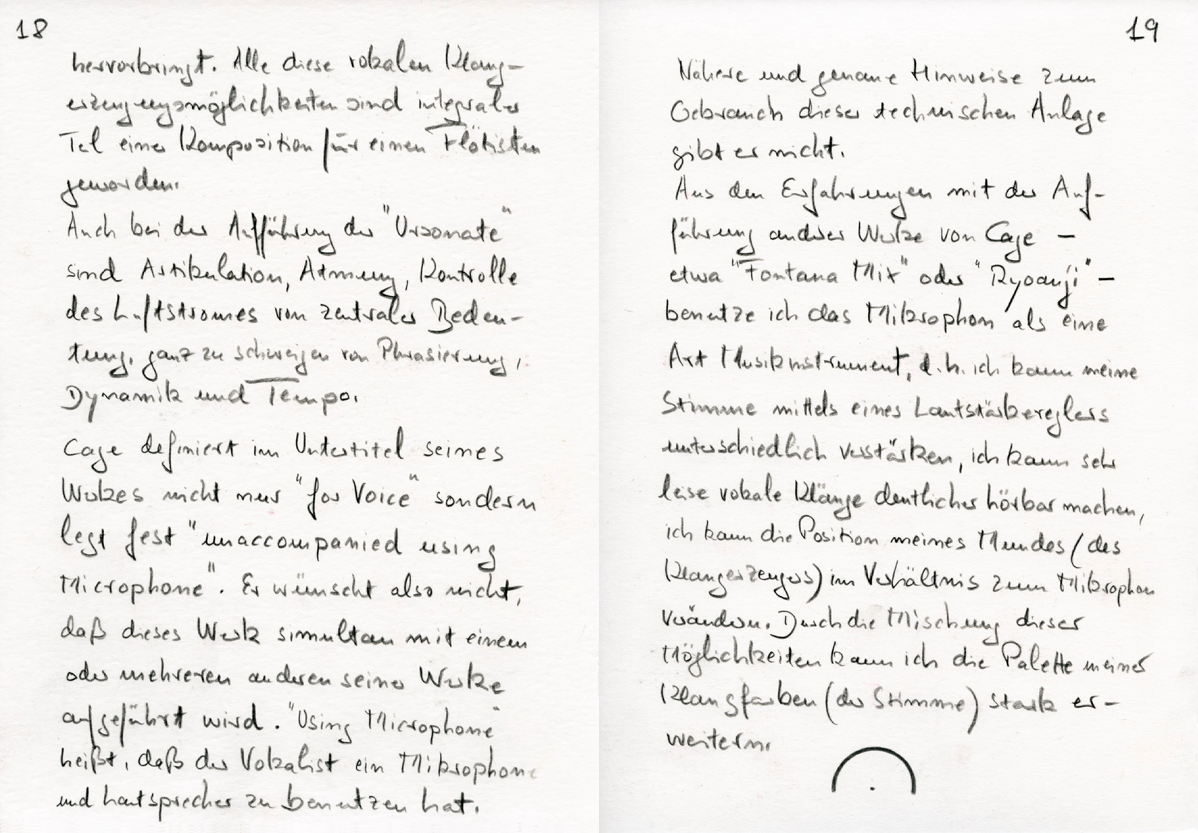 18
hervorbringt. Alle diese vokalen Klang-
erzeugungsmöglichkeiten sind integraler
Teil einer Komposition für einen Flötisten
geworden.
Auch bei der Aufführung der "Ursonate"
sind Artikulation, Atmung, Kontrolle
des Luftstromes von zentraler Bedeu-
tung, ganz zu schweigen von Phrasierung,
Dynamik und Tempo.
Cage definiert im Untertitel seines
Werkes nicht nur "for Voice" sondern
legt fest "unaccompanied using
Microphone". Er wünscht also nicht,
daß dieses Werk simultan mit einem
oder mehreren anderen seiner Werke
aufgeführt wird. "Using Microphone"
heißt, daß der Vokalist ein Mikrophone
und Lautsprecher zu benutzen hat.
19
Nähere und genaue Hinweise zum
Gebrauch dieser technischen Anlage
gibt er nicht.
Aus den Erfahrungen mit der Auf-
führung anderer Werke von Cage –
etwa "Fontana Mix" oder "Ryoanji" –
benutze ich das Mikrophon als eine
Art Musikinstrument, d.h. ich kann meine
Stimme mittels eines Lautstärkereglers
unterschiedlich verstärken, ich kann sehr
leise vokale Klänge deutlicher hörbar machen,
ich kann die Position meines Mundes (des
Klangerzeugers) im Verhältnis zum Mikrophon
verändern. Durch die Mischung dieser
Möglichkeiten kann ich die Palette meiner
Klangfarben (der Stimme) stark er-
weitern.